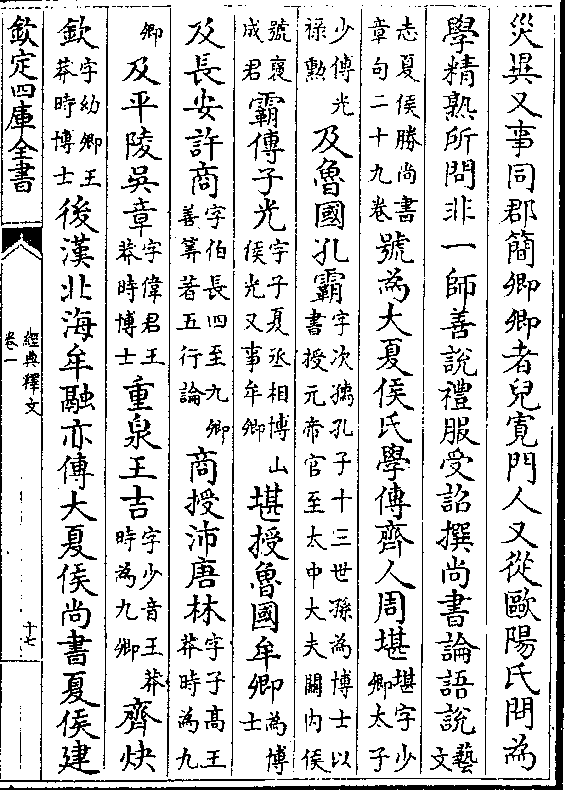 災異又事同郡簡卿卿者兒寛門人又從歐陽氏問為
學精熟所問非一師善說禮服受詔撰尚書論語說藝文
志夏侯勝尚書章句二十九卷號為大夏侯氏學傳齊人周堪堪字少卿太子
少傅光禄勲及魯國孔霸字次孺孔子十三世孫為博士以書授元帝官至太中大夫關内侯
號褒成君霸傳子光字子夏丞相博山侯光又事牟卿堪授魯國牟卿為博士
及長安許商字伯長四至九卿善筭著五行論商授沛唐林字子高王莽時為九
卿及平陵吳章字偉君王莽時博士重泉王吉字少音王莽時為九卿齊炔
欽字幼卿王莽時博士後漢北海牟融亦傳大夏侯尚書夏侯建
欽定四庫全書
經典釋文
卷一
十七